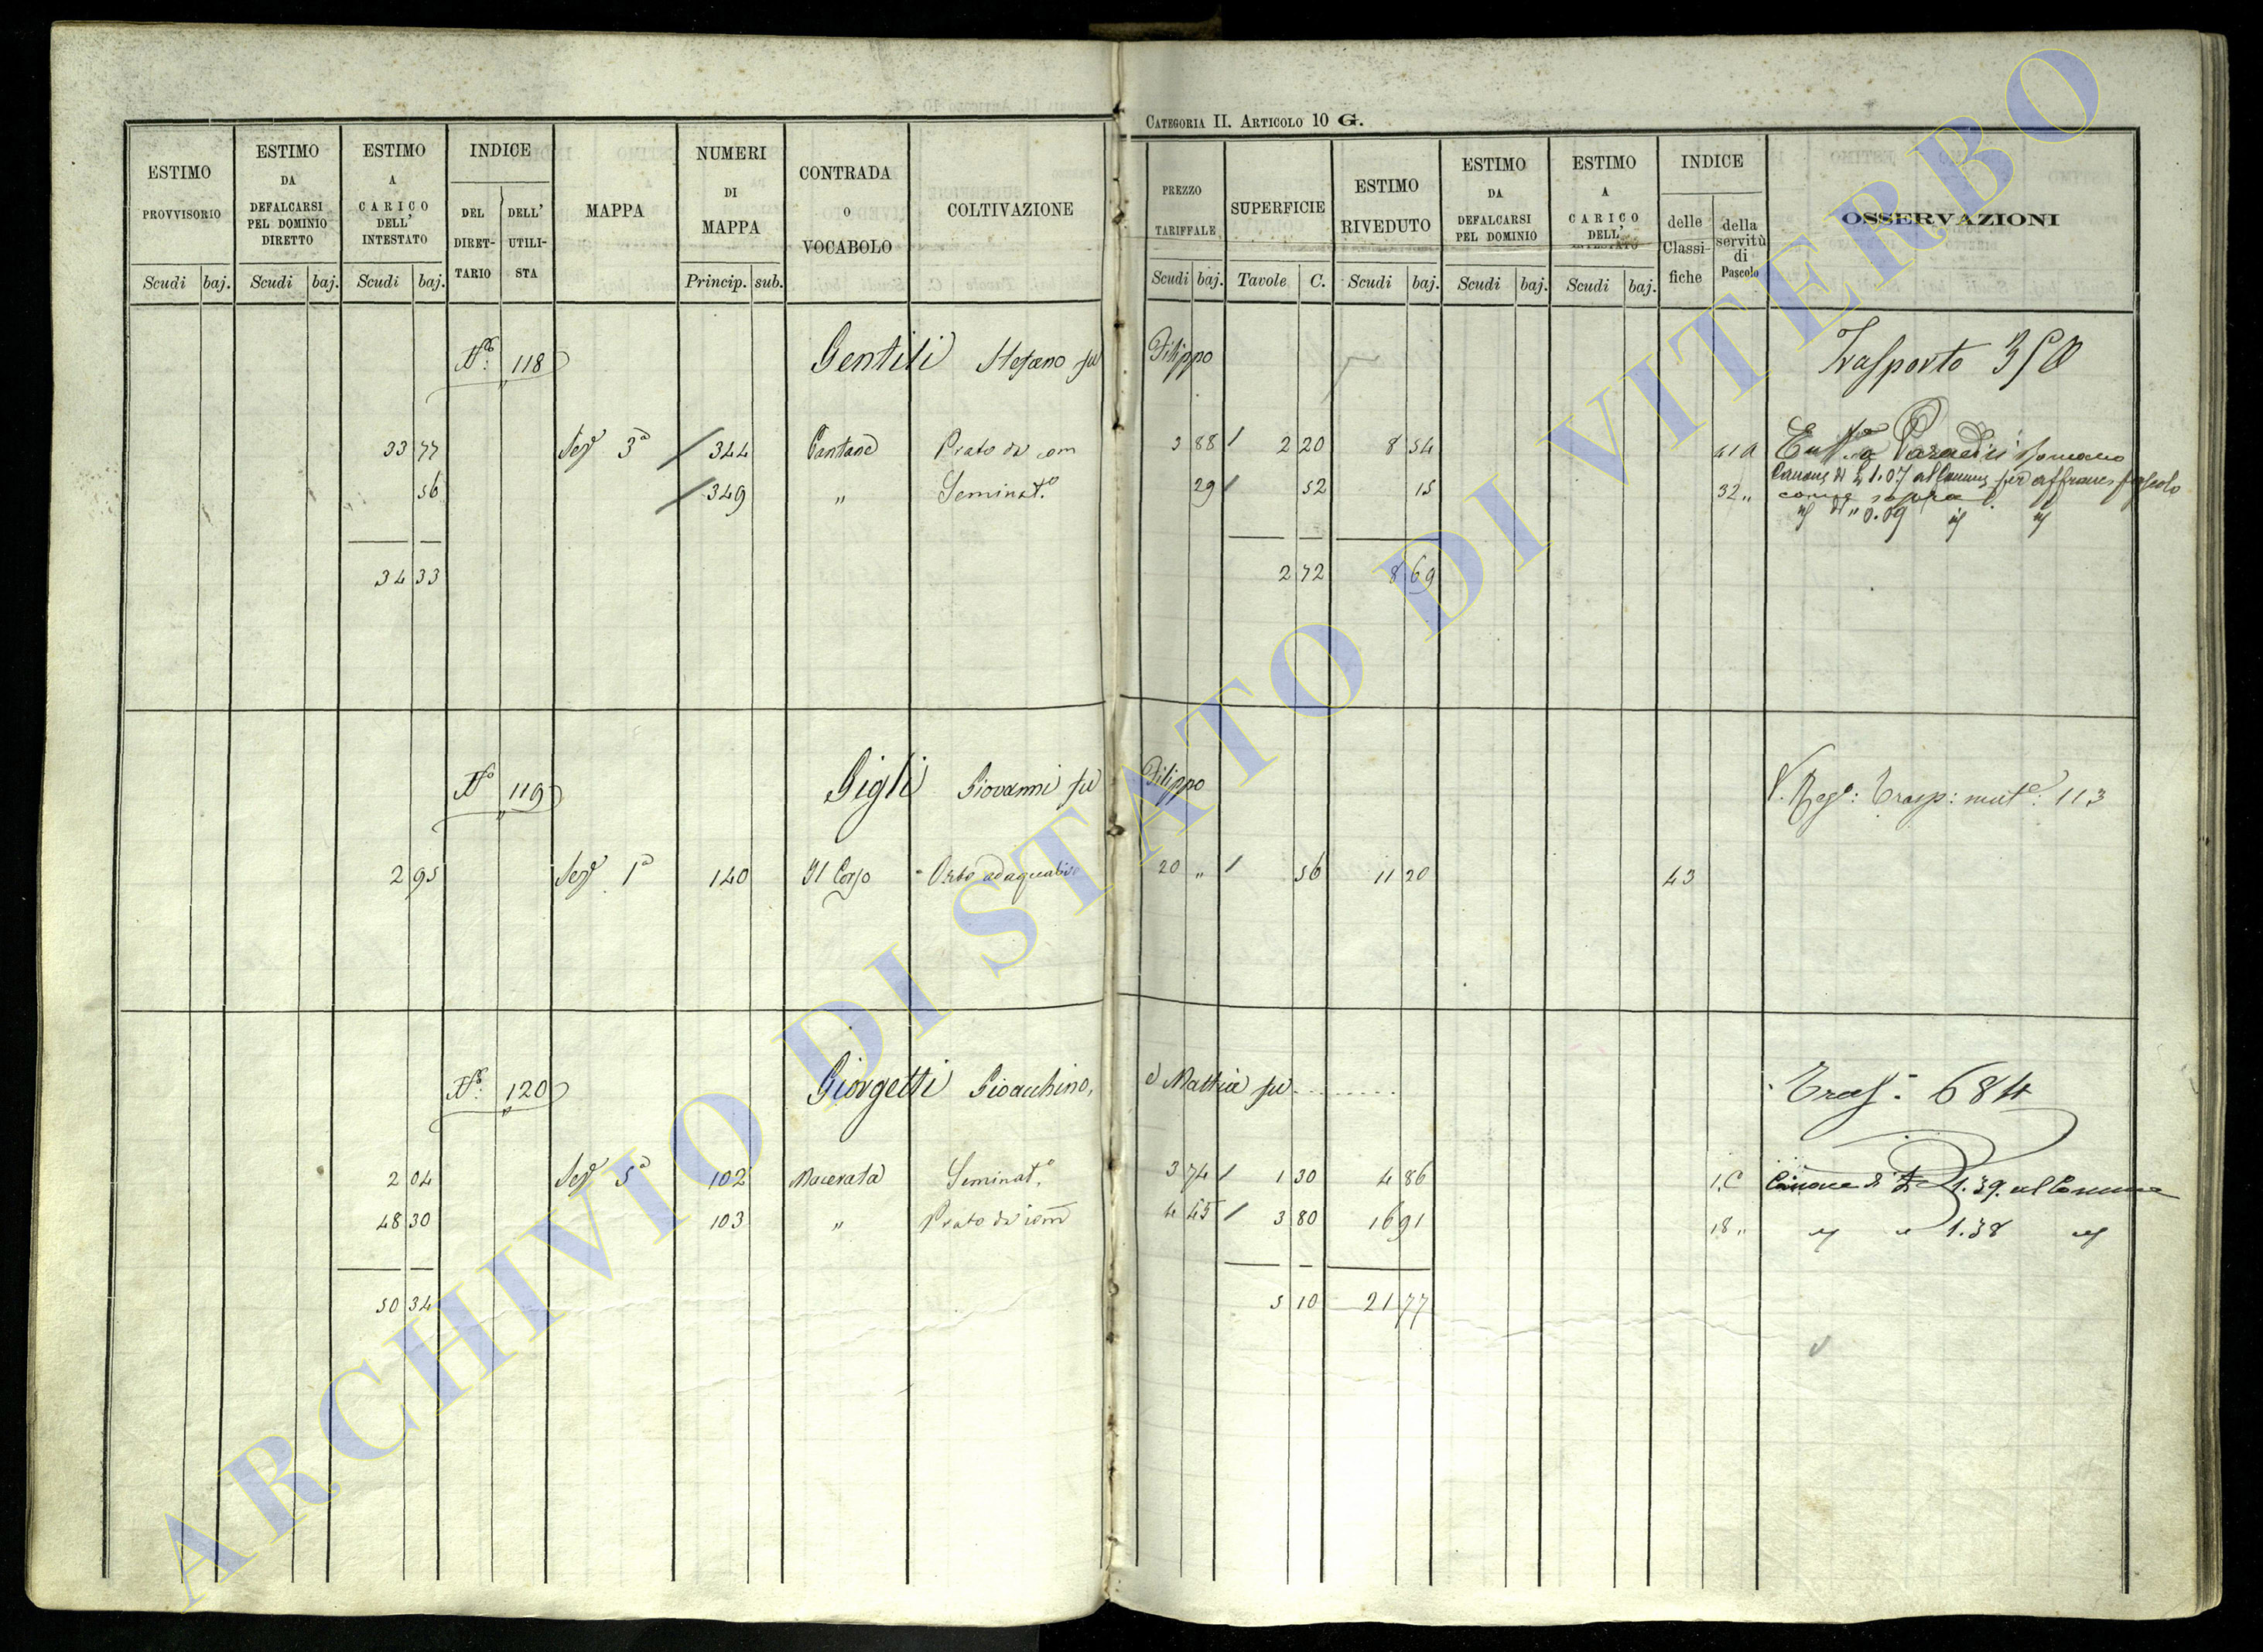 CATEGORIA II. ARTICOLO 10 G.
ESTIMO PROVVISORIO Scudi baj.
ESTIMO DA DEFALCARSI PEL DOMINIO DIRETTO Scudi baj.
ESTIMO A CARICO DELL' INTESTATO Scudi baj.
INDICE DEL DIRETTARIO DELL' UTILISTA
MAPPA
NUMERI DI MAPPA Princip. sub.
CONTRADA O VOCABOLO
COLTIVAZIONE
PREZZO TARIFFALE Scudi baj.
SUPERFICIE Tavole C.
ESTIMO RIVEDUTO Scudi baj.
ESTIMO DA DEFALCARSI PEL DOMINIO Scudi baj.
ESTIMO A CARICO DELL' INTESTATO Scudi baj.
INDICE delle Classifiche della servitù di Pascolo
OSSERVAZIONI
No. 118 Gentili Stefano fu Filippo Trasporto 350
33 77 Sez. 3a 344 Pantane Prato da 3 88 / 2 20 8 54
56 349 " Seminat.o 29 / 52 15 32 " come sopra
" 0.09
34 33 2 72 8 69
No 119 Gigli Giovanni fu Filippo V. Rego: Trasp: mute: 113
2 95 Sez. 1a 140 Il Corso Orto adaquativo 20 " / 56 11 20 43
No. 120 Giorgetti Gioacchino, e Mattia fu ......... Trasf. 684
2 04 Sez. 5a 102 Macerata Seminat.o 3 74 / 1 30 4 86 1.C Canone di 1.39. al Comune
48 30 103 " Prato da 4 45 / 3 80 16 91 18 " " 1.38
50 34 5 10 21 77
ARCHIVIO DI STATO DI VITERBO